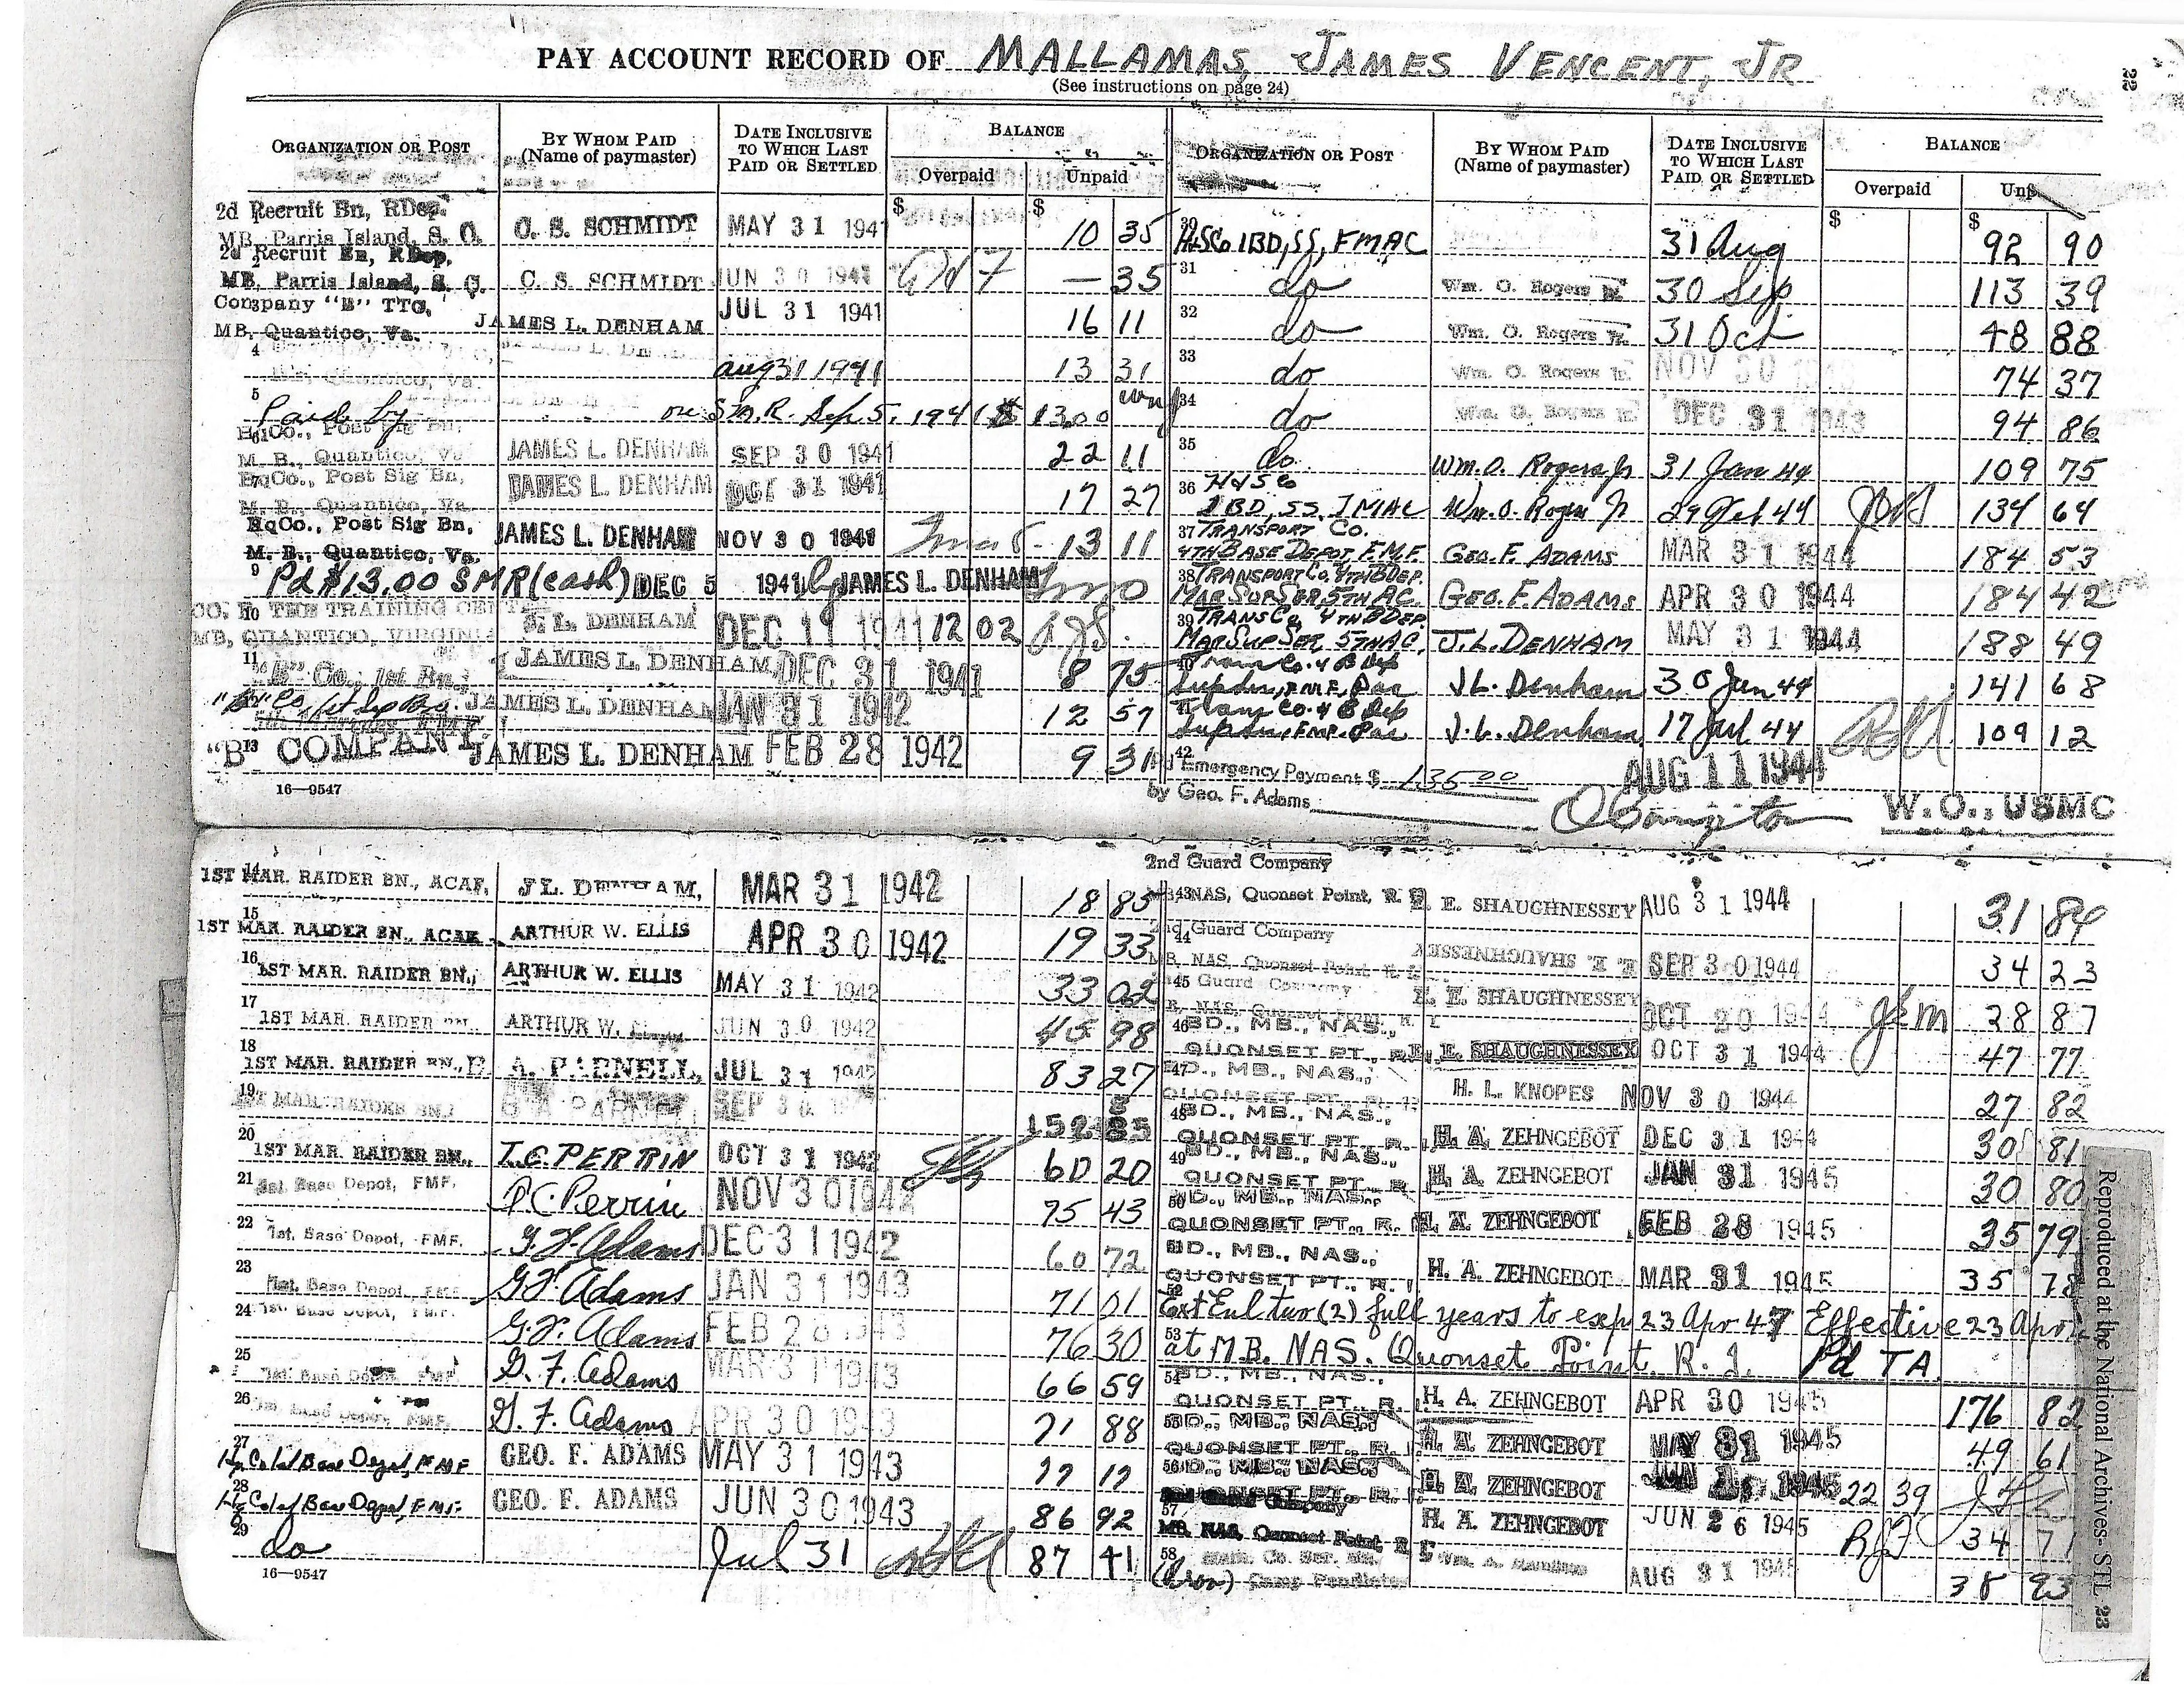 PAY ACCOUNT RECORD OF MALLAMAS, JAMES VENCENT, JR
(See instructions on page 24)
22
ORGANIZATION OR POST BY WHOM PAID (Name of paymaster) DATE INCLUSIVE TO WHICH LAST PAID OR SETTLED BALANCE Overpaid Unpaid
2d Recruit Bn, RDep. MB, Parris Island, S. C. C. S. SCHMIDT MAY 31 1941 $ $ 10 35
2d Recruit Bn, RDep. MB, Parris Island, S. C. C. S. SCHMIDT JUN 30 1941 — 35
Company "E" TTC. MB, Quantico, Va. JAMES L. DENHAM JUL 31 1941 16 11
4 Quantico, Va. Aug 31 1941 13 31
5 Paid by on S.M.R. Sep 5, 1941 $ 13 00
HqCo., Post Sig Bn, M. B., Quantico, Va JAMES L. DENHAM SEP 30 1941 22 11
HqCo., Post Sig Bn, M. B., Quantico, Va JAMES L. DENHAM OCT 31 1941 17 27
HqCo., Post Sig Bn, M. B., Quantico, Va. JAMES L. DENHAM NOV 30 1941 13 11
9 Pd $13.00 SMR (cash) DEC 5 1941 by JAMES L. DENHAM
10 CO. THE TRAINING CENT MB, QUANTICO, VIRGINIA J. L. DENHAM DEC 11 1941 12 02
11 "B" Co., 1st Bn., JAMES L. DENHAM DEC 31 1941 8 75
"B" Co 1st Sep Bn. JAMES L. DENHAM JAN 31 1942 12 57
13 "B" COMPANY JAMES L. DENHAM FEB 28 1942 9 31
16—9547
14 1ST MAR. RAIDER BN., ACAF, J L. DENHAM, MAR 31 1942 18 85
15 1ST MAR. RAIDER BN., ACAF ARTHUR W. ELLIS APR 30 1942 19 33
16 1ST MAR. RAIDER BN., ARTHUR W. ELLIS MAY 31 1942 33 02
17 1ST MAR. RAIDER BN., ARTHUR W. JUN 30 1942 45 98
18 1ST MAR. RAIDER BN., B. A. PARNELL, JUL 31 1942 83 27
19 1ST MAR. RAIDER BN., B A PARNELL SEP 30 152 85
20 1ST MAR. RAIDER BN., T.C. PERRIN OCT 31 1942 60 20
21 1st. Base Depot, FMF. T.C. Perrin NOV 30 1942 75 43
22 1st. Base Depot, FMF. G. F. Adams DEC 31 1942 60 72
23 1st. Base Depot, FMF. G. F. Adams JAN 31 1943 71 01
24 1st. Base Depot, FMF. G. F. Adams FEB 28 1943 76 30
25 1st. Base Depot, FMF. G. F. Adams MAR 31 1943 66 59
26 1st. Base Depot, FMF. G. F. Adams APR 30 1943 71 88
27 1st Base Depot, FMF GEO. F. ADAMS MAY 31 1943 77 17
28 1st Base Depot, FMF. GEO. F. ADAMS JUN 30 1943 86 92
29 do Jul 31 87 41
16—9547
ORGANIZATION OR POST BY WHOM PAID (Name of paymaster) DATE INCLUSIVE TO WHICH LAST PAID OR SETTLED BALANCE Overpaid
30 H&SCo 1BD, SS, FMAC 31 Aug $ $ 92 90
31 do Wm. O. Rogers Jr. 30 Sep 113 39
32 do Wm. O. Rogers Jr. 31 Oct 48 88
33 do Wm. O. Rogers Jr. NOV 30 74 37
34 do Wm. O. Rogers DEC 31 1943 94 86
35 do Wm. O. Rogers Jr 31 Jan 44 109 75
36 H&SCo 1BD, SS, IMAC Wm. O. Rogers Jr 29 Feb 44 134 64
37 TRANSPORT CO. 4TH BASE DEPOT, F.M.F. GEO. F. ADAMS MAR 31 1944 184 53
38 TRANSPORT CO. 4TH BDEP. MAR SUP SER 5TH AC. GEO. F. ADAMS APR 30 1944 184 42
39 TRANS CO, 4TH BDEP. MAR SUP SER, 5TH AC, J. L. DENHAM MAY 31 1944 188 49
40 Trans Co. 4 B Dep SupSer, F.M.F., Pac J L. Denham 30 Jun 44 141 68
Trans Co. 4 B Dep SupSer, FMF. Pac J. L. Denham 17 Jul 44 109 12
42 Emergency Payment $ 135 00 AUG 11 1944
by Geo. F. Adams W. O., USMC
2nd Guard Company
43 NAS, Quonset Point, R. I. E. E. SHAUGHNESSEY AUG 31 1944 31 84
44 2nd Guard Company MB, NAS, Quonset Point, R. I. E. E. SHAUGHNESSEY SEP 30 1944 34 23
45 Guard Company NAS, Quonset Point, R. I. E. E. SHAUGHNESSEY OCT 20 1944 28 87
46 BD., MB., NAS., QUONSET PT., R. I. E. E. SHAUGHNESSEY OCT 31 1944 47 77
47 BD., MB., NAS., QUONSET PT., R. I. H. L. KNOPES NOV 30 1944 27 82
48 BD., MB., NAS., QUONSET PT., R. H. A. ZEHNGEBOT DEC 31 1944 30 81
49 BD., MB., NAS., QUONSET PT., R H. A. ZEHNGEBOT JAN 31 1945 30 80
50 BD., MB., NAS., QUONSET PT., R. I. H. A. ZEHNGEBOT FEB 28 1945 35 79
BD., MB., NAS., QUONSET PT., R. I H. A. ZEHNGEBOT MAR 31 1945 35 78
52 Ext Enl two (2) full years to exp 23 Apr 47 Effective 23 Apr
53 at MB. NAS. Quonset Point, R. I. Pd TA.
54 BD., MB., NAS., QUONSET PT., R. I. H. A. ZEHNGEBOT APR 30 1945 176 82
55 BD., MB., NAS., QUONSET PT., R. I. H. A. ZEHNGEBOT MAY 31 1945 49 61
56 BD., MB., NAS., QUONSET PT., R. I. H. A. ZEHNGEBOT JUN 1945 22 39
57 Guard Company MB, NAS, Quonset Point, R I H. A. ZEHNGEBOT JUN 26 1945 34 71
58 Camp Pendleton Wm. A. AUG 31 1945 38 93
Reproduced at the National Archives- STL
23